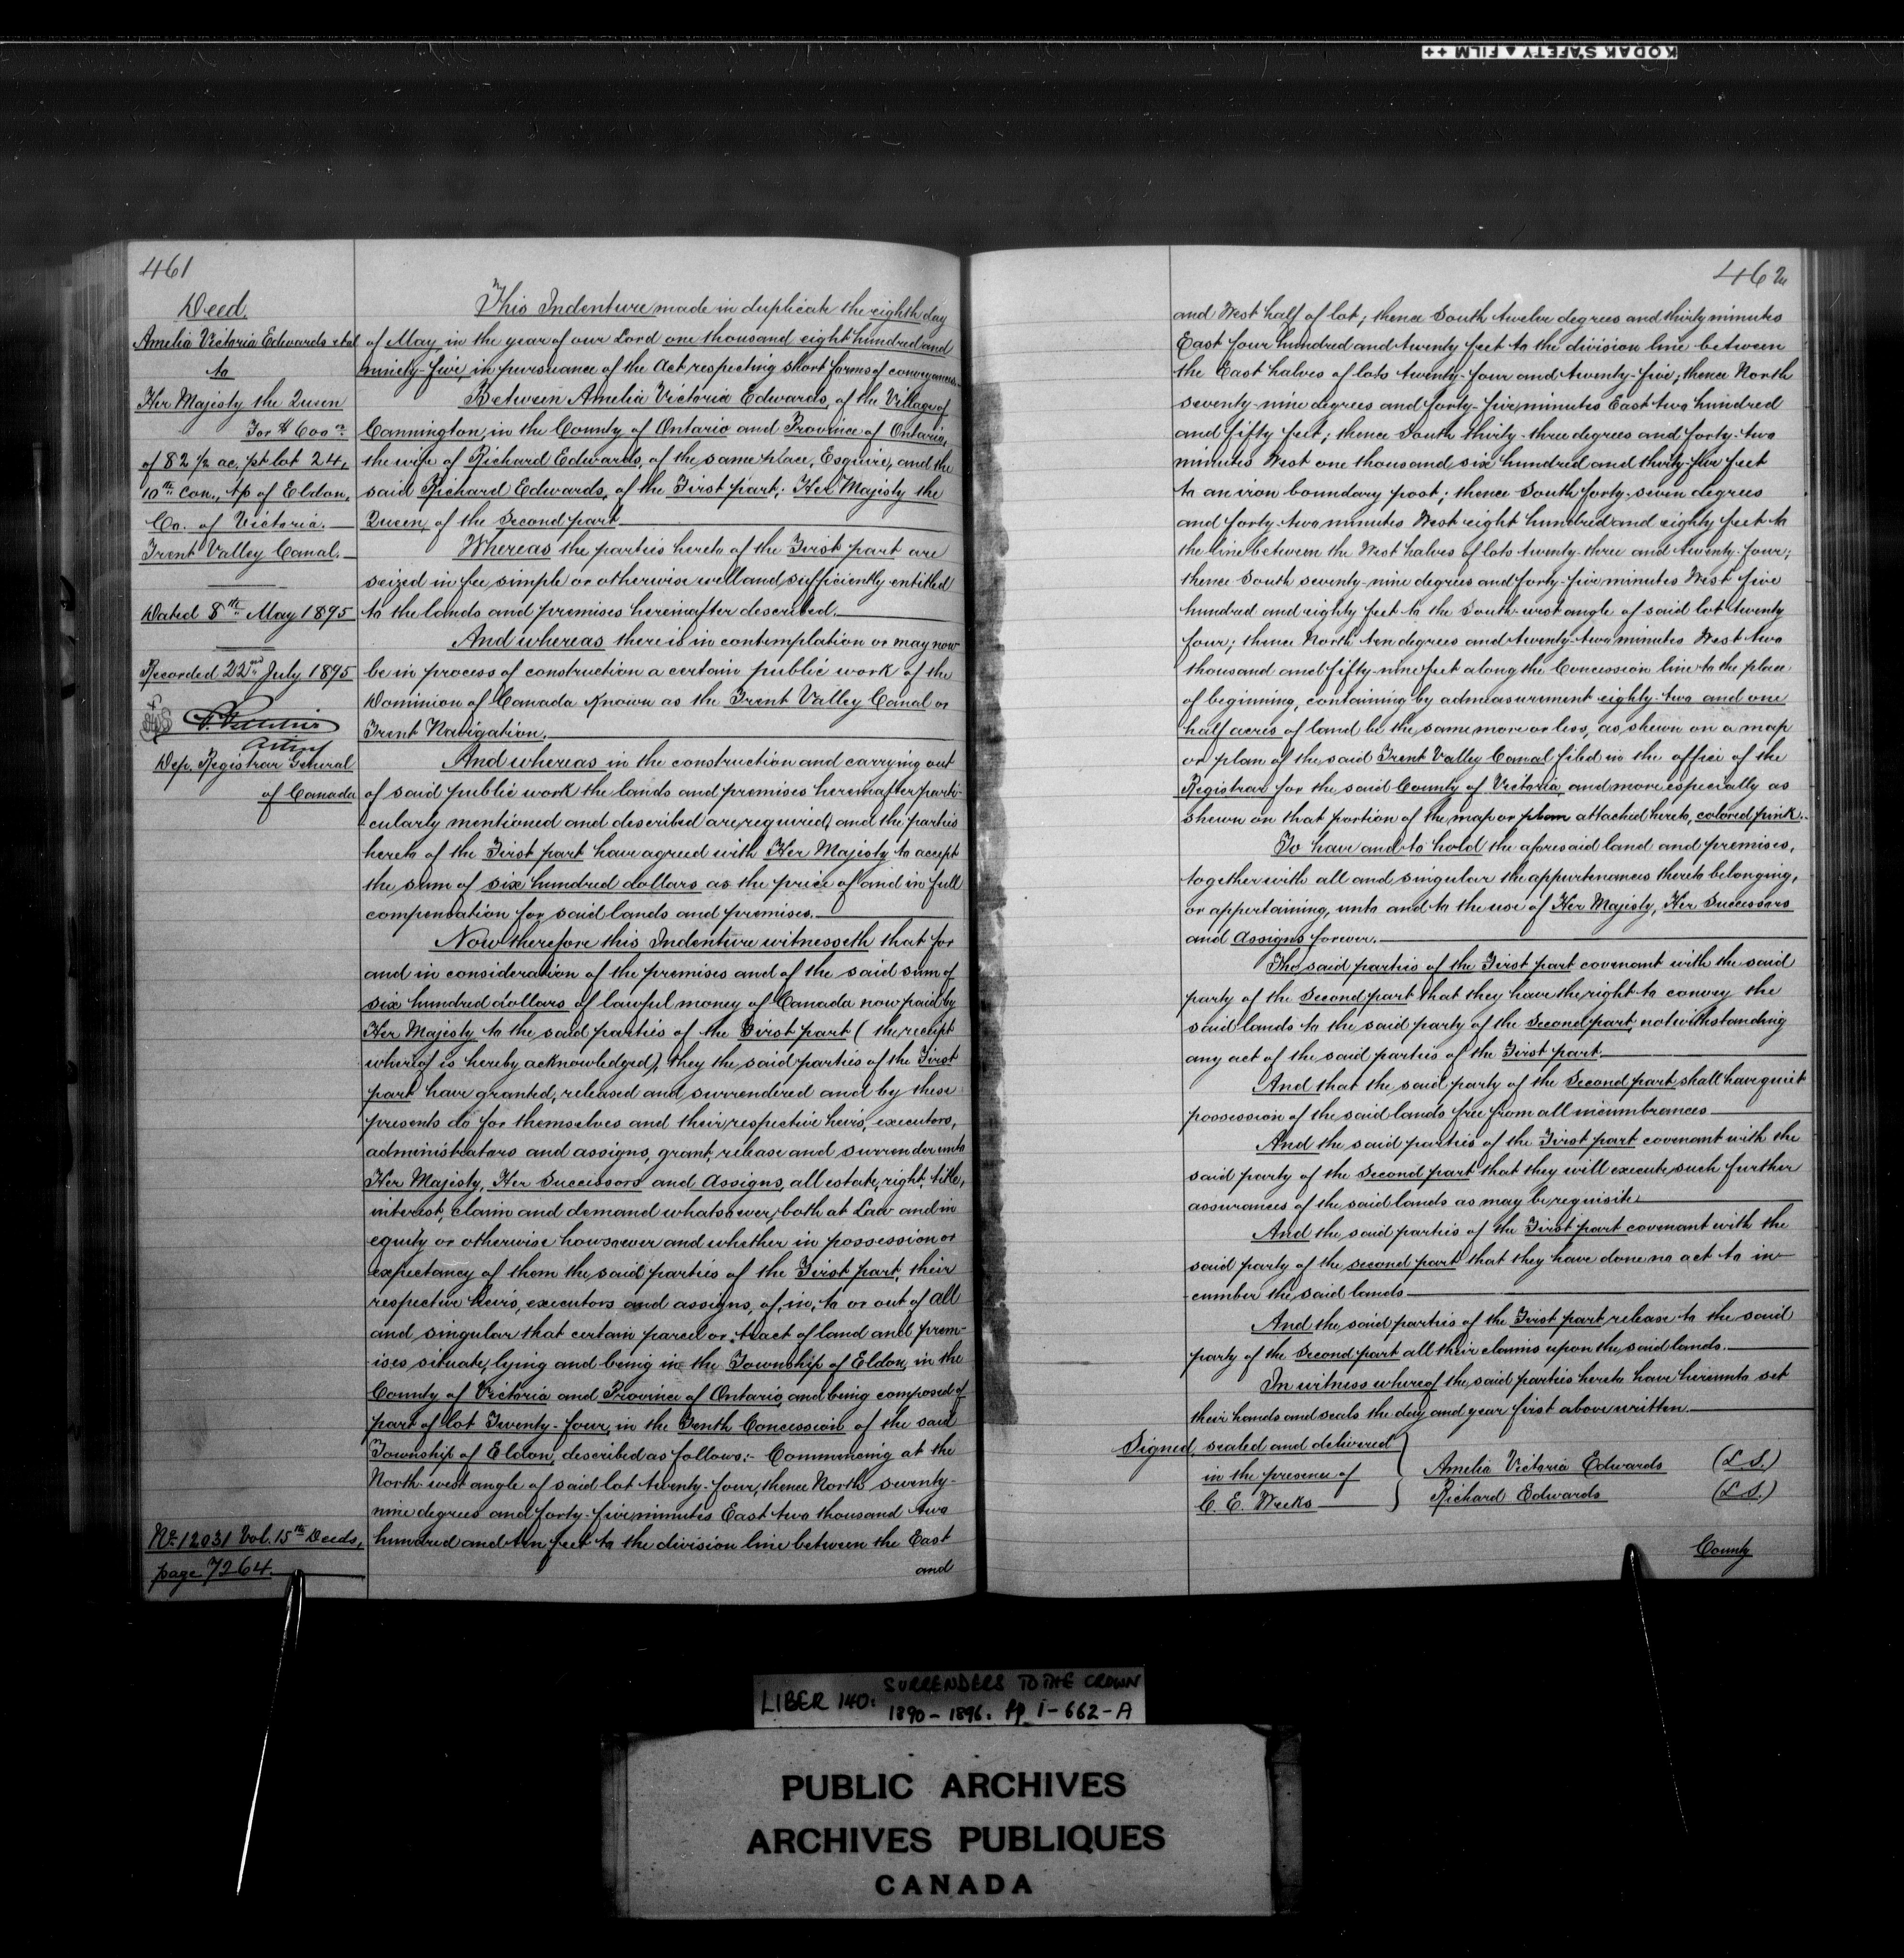 KODAK SAFETY ▲ FILM ++
461
Deed.
Amelia Victoria Edwards et al
to
Her Majesty the Queen
For $600.00
of 82 1/2 ac. pt lot 24,
10th Con., Tp of Eldon,
Co. of Victoria.
Trent Valley Canal.
Dated 8th May 1895
Recorded 22nd July 1895
Acting
Dep. Registrar General
of Canada
No 12031 Vol. 15th Deeds,
page 7264.
This Indenture made in duplicate the eighth day
of May, in the year of our Lord one thousand eight hundred and
ninety-five, in pursuance of the Act respecting short forms of conveyances.
Between Amelia Victoria Edwards, of the Village of
Cannington, in the County of Ontario and Province of Ontario,
the wife of Richard Edwards, of the same place, Esquire, and the
said Richard Edwards, of the First part; Her Majesty the
Queen, of the Second part
Whereas the parties hereto of the First part are
seized in fee simple or otherwise well and sufficiently entitled
to the lands and premises hereinafter described.
And whereas there is in contemplation or may now
be in process of construction a certain public work of the
Dominion of Canada known as the Trent Valley Canal or
Trent Navigation.
And whereas in the construction and carrying out
of said public work the lands and premises hereinafter parti-
cularly mentioned and described are required, and the parties
hereto of the First part have agreed with Her Majesty to accept
the sum of six hundred dollars as the price of and in full
compensation for said lands and premises.
Now therefore this Indenture witnesseth that for
and in consideration of the premises and of the said sum of
six hundred dollars of lawful money of Canada now paid by
Her Majesty to the said parties of the First part (the receipt
whereof is hereby acknowledged), they the said parties of the First
part have granted, released and surrendered and by these
presents do for themselves and their respective heirs, executors,
administrators and assigns, grant, release and surrender unto
Her Majesty, Her Successors and Assigns, all estate, right, title,
interest, claim and demand whatsoever, both at Law and in
equity or otherwise howsoever and whether in possession or
expectancy of them the said parties of the First part, their
respective heirs, executors and assigns, of, in, to or out of all
and singular that certain parcel or tract of land and prem-
ises situate, lying and being in the Township of Eldon, in the
County of Victoria and Province of Ontario, and being composed of
part of lot Twenty-four, in the Tenth Concession of the said
Township of Eldon, described as follows:- Commencing at the
North-west angle of said lot twenty-four, thence North seventy-
nine degrees and forty-five minutes East two thousand two
hundred and ten feet to the division line between the East
and
462
and West half of lot; thence South twelve degrees and thirty minutes
East four hundred and twenty feet to the division line between
the East halves of lots twenty-four and twenty-five; thence North
seventy-nine degrees and forty-five minutes East two hundred
and fifty feet; thence South thirty-three degrees and forty-two
minutes West one thousand six hundred and thirty-five feet
to an iron boundary post; thence South forty-seven degrees
and forty-two minutes West eight hundred and eighty feet to
the line between the West halves of lots twenty-three and twenty-four;
thence South seventy-nine degrees and forty-five minutes West five
hundred and eighty feet to the South-west angle of said lot twenty
four; thence North ten degrees and twenty-two minutes West two
thousand and fifty-nine feet along the Concession line to the place
of beginning, containing by admeasurement eighty-two and one
half acres of land be the same more or less, as shewn on a map
or plan of the said Trent Valley Canal filed in the office of the
Registrar for the said County of Victoria, and more especially as
shewn on that portion of the map or plan attached hereto, colored pink.
To have and to hold the aforesaid land and premises,
together with all and singular the appurtenances thereto belonging,
or appertaining, unto and to the use of Her Majesty, Her Successors
and Assigns forever.
The said parties of the First part covenant with the said
party of the Second part that they have the right to convey the
said lands to the said party of the Second part, notwithstanding
any act of the said parties of the First part.
And that the said party of the Second part shall have quiet
possession of the said lands free from all incumbrances
And the said parties of the First part covenant with the
said party of the Second part that they will execute such further
assurances of the said lands as may be requisite
And the said parties of the First part covenant with the
said party of the second part that they have done no act to in-
cumber the said lands
And the said parties of the First part release to the said
party of the Second part all their claims upon the said lands.
In witness whereof the said parties hereto have hereunto set
their hands and seals the day and year first above written.
Signed, sealed and delivered
in the presence of
C. E. Weeks
Amelia Victoria Edwards (L S.)
Richard Edwards (L S.)
County
LIBER 140: SURRENDERS TO THE CROWN
1890-1896. Pp 1-662-A
PUBLIC ARCHIVES
ARCHIVES PUBLIQUES
CANADA